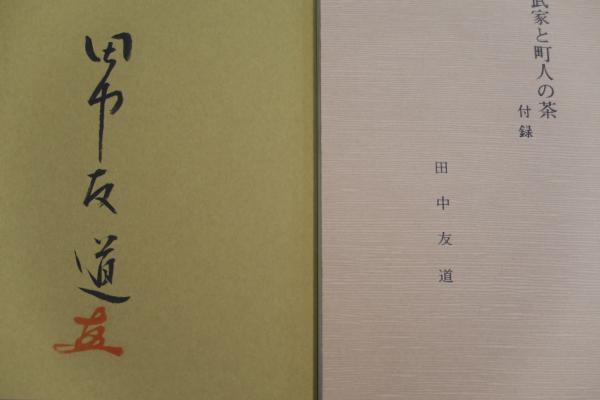 武家と町人の茶
付録
田中友道
田中友道